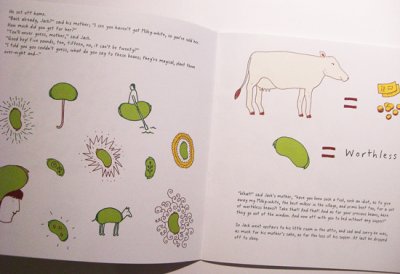 He set off home.
"Back already, Jack?" said his mother; "I see you haven't got Milky-white, so you've sold her.
How much did you get for her?"
"You'll never guess, mother," said Jack.
"Good boy! Five pounds, ten, fifteen, no, it can't be twenty?"
"I told you you couldn't guess, what do you say to these beans; they're magical, plant them
over-night and—"
Worthless
"What!" said Jack's mother, "have you been such a fool, such an idiot, as to give
away my Milky-white, the best milker in the village, and prime beef too, for a set
of worthless beans? Take that! And that! And as for your precious beans, here
they go out of the window. And now off with you to bed without any supper!"
So Jack went upstairs to his little room in the attic, and sad and sorry he was,
as much for his mother's sake, as for the loss of his supper. At last he dropped
off to sleep.